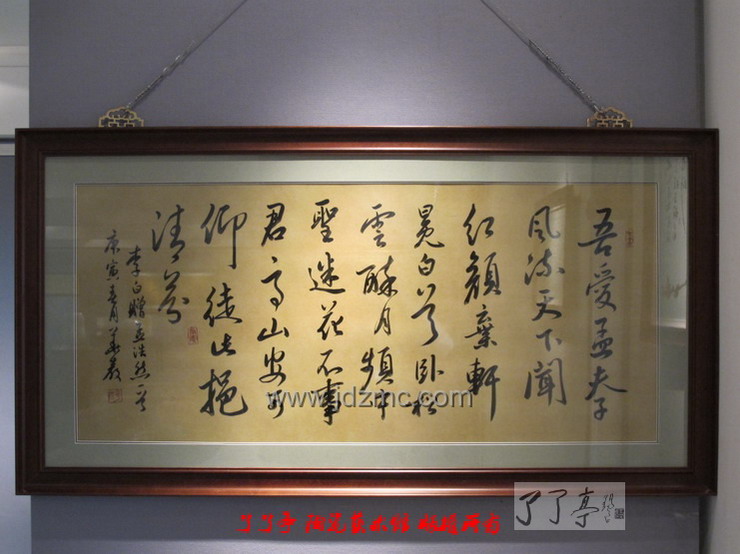 吾愛孟夫子
風流天下聞
红顏棄軒
冕白首卧松
雲醉月頻中
聖迷花不事
君高山安可
仰徒此挹
清芬
李白贈孟浩然一首
庚寅春月
www.jdzmc.com
了了亭 陶瓷艺术馆 版权所有
了了亭